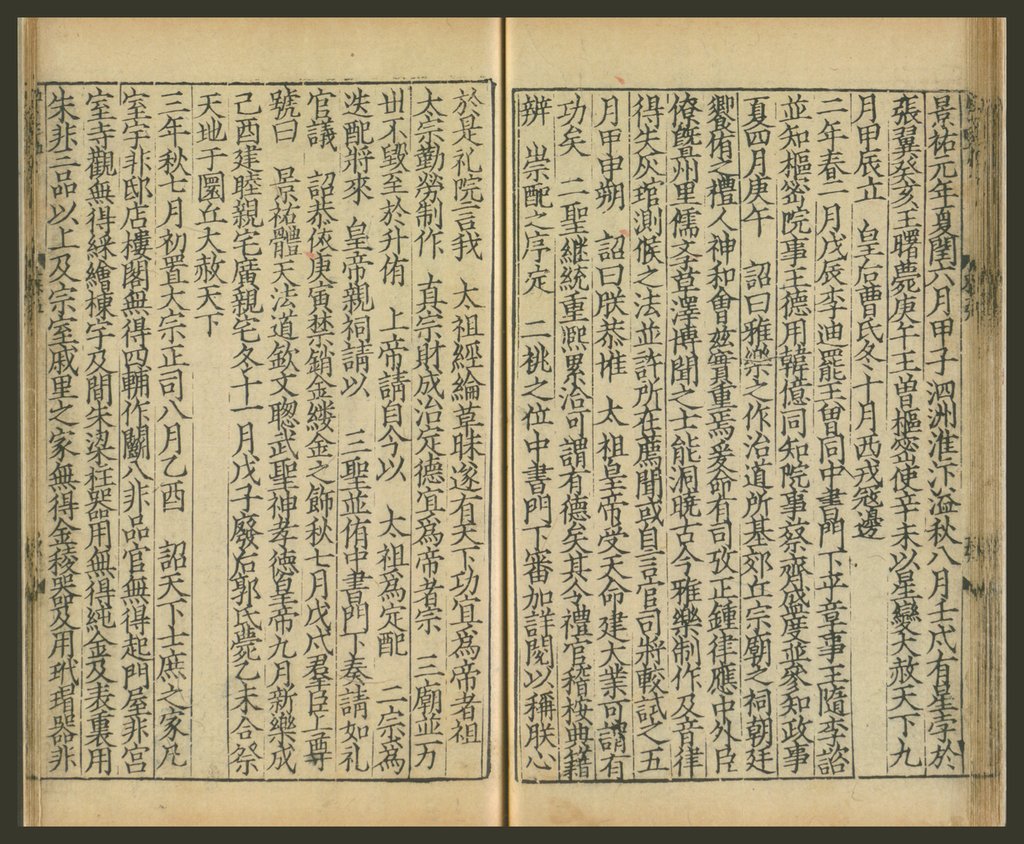 景祐元年夏閏六月甲子 泗洲淮汴溢秋八月壬戌有星孛於
張翼癸亥王曙薨庚午王曽樞宻使辛未以星變大赦天下九
月甲辰立 皇后曹氏冬十月西戎𡨥邊
二年春二月戊辰李迪罷王曽同中書門下平章事王隨李諮
並知樞宻院事王德用韓億同知院事蔡齊盛度並叅知政事
夏四月庚午 詔曰雅樂之作治道所基郊丘宗廟之祠朝廷
饗侑之禮人神和會兹實重焉爰命有司攷正鍾律應中外臣
僚曁州里儒文草澤博聞之士能洞曉古今雅樂制作及音律
得失灰琯測候之法並許所在薦聞或自言官司將較試之五
月甲申朔 詔曰朕恭惟 太祖皇帝受天命建大業可謂有
功矣 二聖継統重熈累洽可謂有德矣其令禮官稽桉典籍
辨 崇配之序定 二祧之位中書門下審加詳閱以稱朕心
於是礼院言我 太祖經綸草昧遂有天下功宜爲帝者祖
太宗勤勞制作 真宗財成治定德宜爲帝者宗 三廟並万
丗不毀至於升侑 上帝請自今以 太祖爲定配 二宗爲
迭配將來 皇帝親祠請以 三聖並侑中書門下奏請如礼
官議 詔恭依庚寅禁銷金縷金之飾秋七月戊戌羣臣上尊
號曰 景祐體天法道欽文聦武聖神孝德皇帝九月新樂成
己酉建睦親宅廣親宅冬十一月戊子廢后郭氏薨乙未合祭
天地于圜丘大赦天下
三年秋七月初置大宗正司八月乙酉 詔天下士庶之家凡
室宇非邸店樓閣無得四輔作鬭八非品官無得起門屋非宫
室寺觀無得綵繪棟宇及間朱染柱器用無得純金及表裏用
朱非三品以上及宗室戚里之家無得金稜器及用玳瑁器非